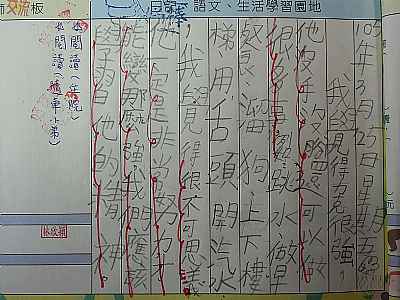 師交流板
語文、生活學習園地
年3月25日星期五
我覺得力克很強,
他沒手沒腳還可以做
很多事,翻跳水、做早
餐、溜狗、上下樓
梯、用舌頭開汽水
,我覺得很不可思議
他一定是非常努力才
能變那麼強,我們應該
學習他的精神
閱讀(
閱讀(